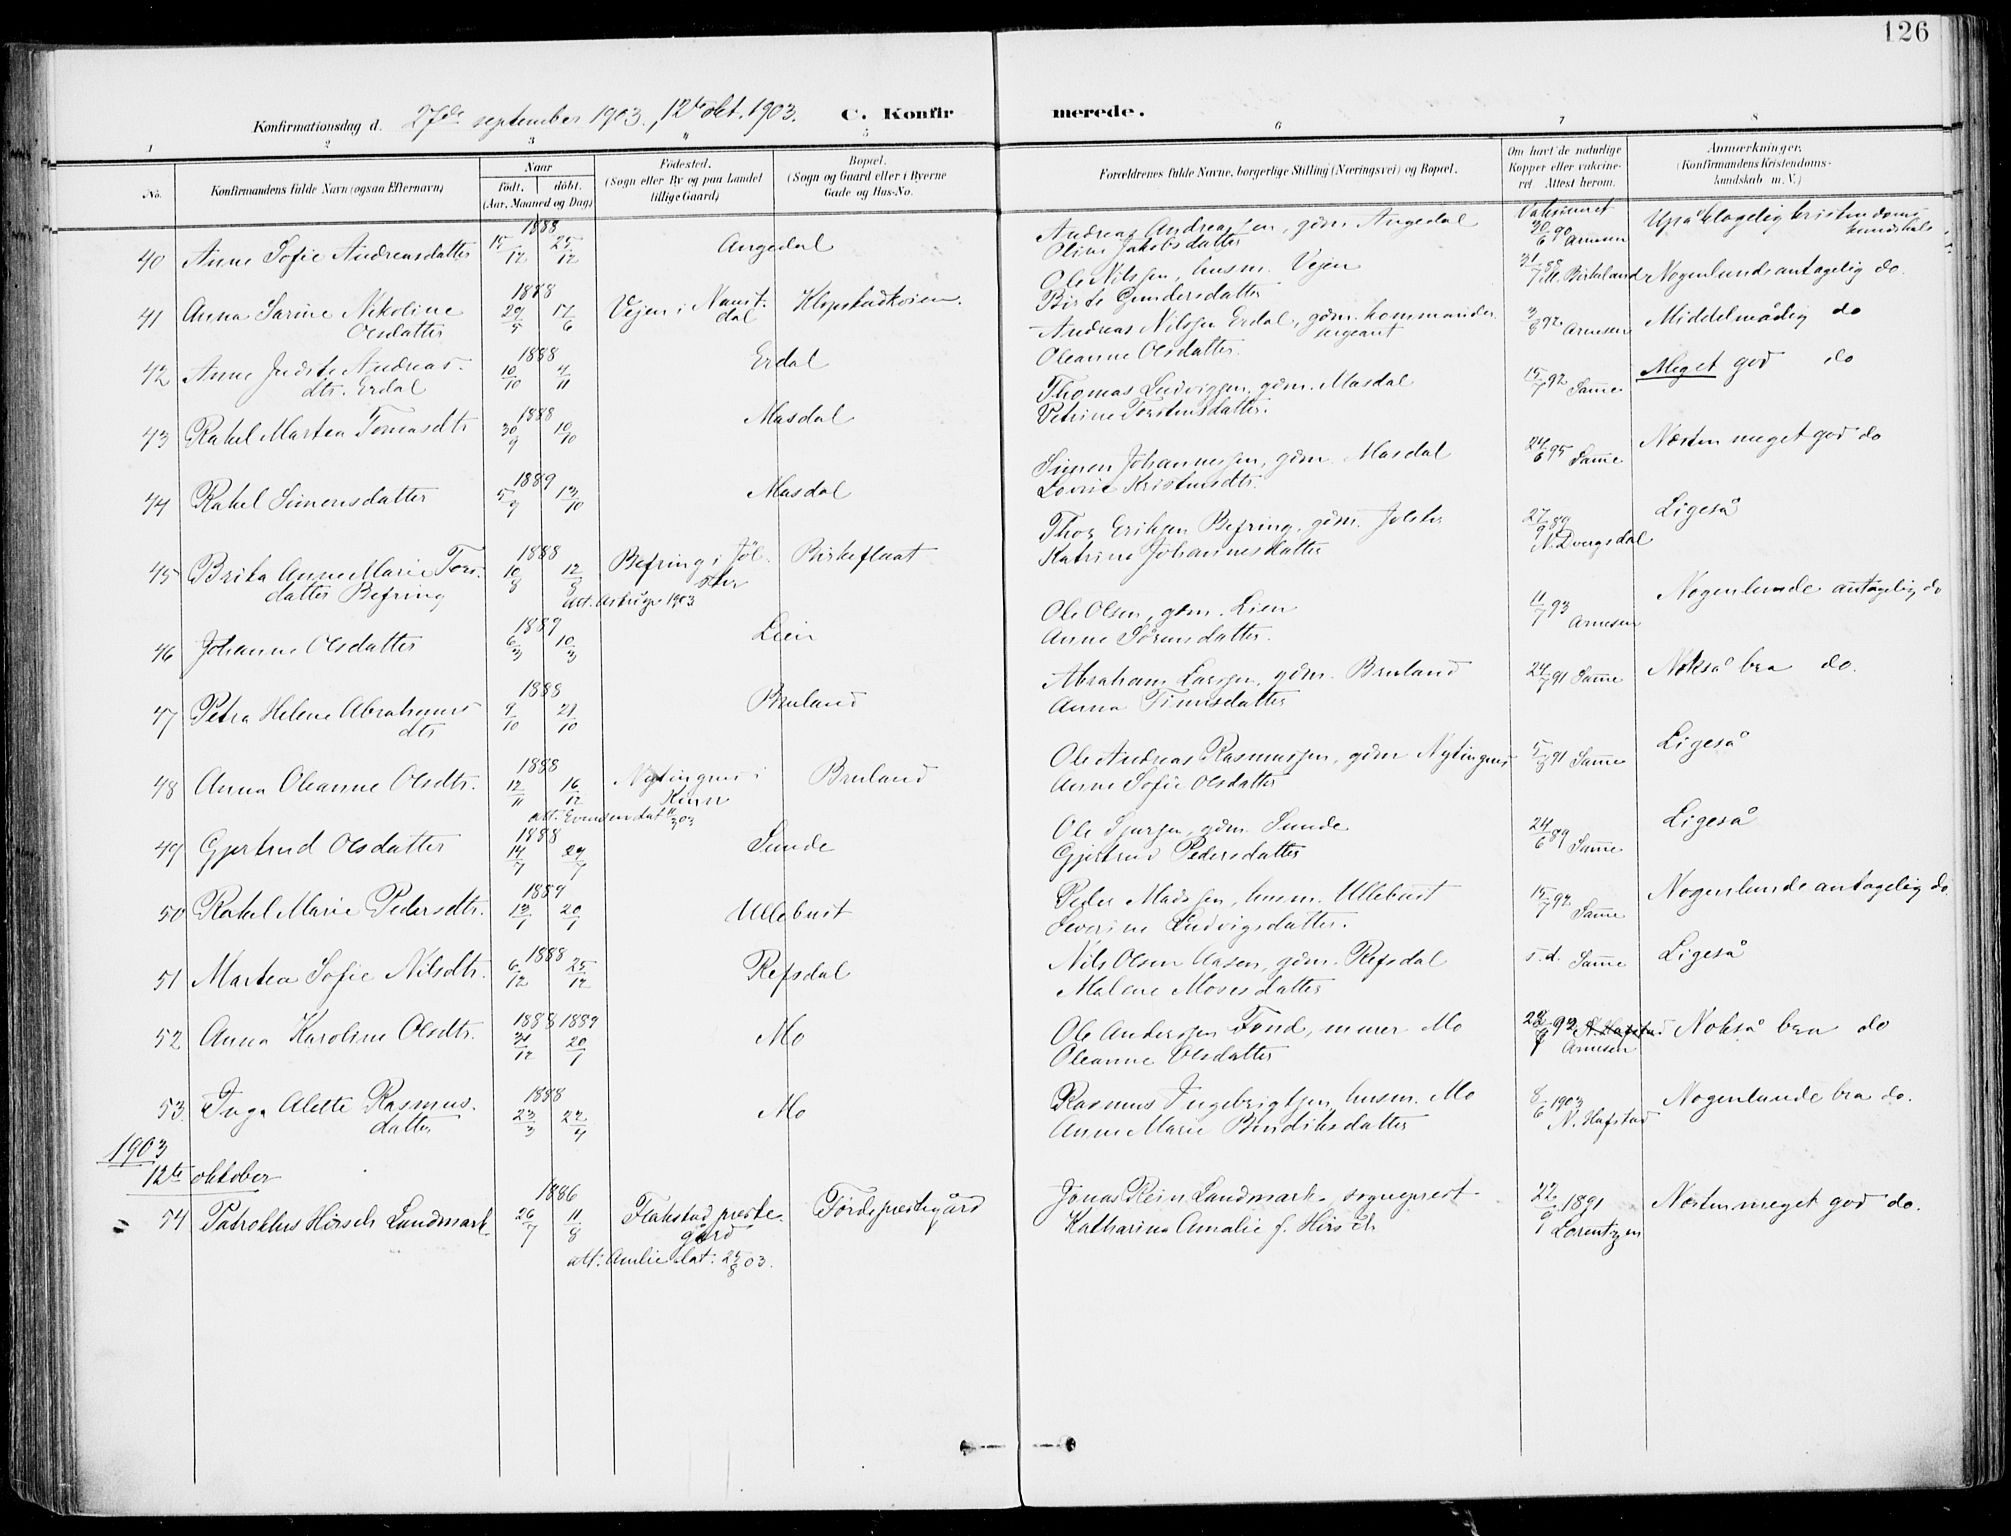 126
Konfirmationsdag d. 27de september 1903, 12te okt. 1903. C. Konfirmerede.
1 2 3 4 5 6 7 8
No. Konfirmandens fulde Navn (ogsaa Efternavn)
Naar født, døbt. (Aar, Maaned og Dag)
Fødested. (Sogn eller By og paa Landet tillige Gaard)
Bopæl. (Sogn og Gaard eller i Byerne Gade og Hus-No.
Forældrenes fulde Navne, borgerlige Stilling (Næringsvei) og Bopæl.
Om havt de naturlige Kopper eller vakcineret. Attest herom.
Anmærkninger. (Konfirmandens Kristendomskundskab m. V.)
40 Anne Sofie Andreasdatter 1888 15/12 25/12 Angedal Andreas Andreassen, gdm. Angedal
Oline Jakobsdatter Vaksineret 30/6 90 Arnesen Upåklagelig kristendomskundskab
41 Anna Sarine Nikoline Olsdatter 1888 29/5 17/6 Vejen i Naustdal Klopstadkvien Ole Nilssen, husm. Vejen
Birte Gundersdatter 31/7 88 M. Birkeland Nogenlunde antagelig do.
42 Anne Judite Andreasdtr. Erdal 1888 10/10 4/11 Erdal Andreas Nilssen Erdal, gdm. kommandersergeant
Oleanne Olsdatter. 3/8 92 Arnesen Middelmådig do
43 Rakel Martea Tomasdtr 1888 30/9 10/10 Masdal Thomas Ludvigsen, gdm. Masdal
Petrine Torstensdatter. 15/7 92 Samme Meget god do
44 Rakel Simonsdatter 1889 5/9 13/10 Masdal Simon Johannessen, gdm. Masdal
Lovise Kristensdtr. 24/6 95 Samme Næsten meget god do
45 Brita Anne Marie Torsdatter Befring 1888 10/8 12/8 Befring i Jølster Birkeflaat
att. Astrup 1903 Thor Eriksen Befring, gdm. Jølster
Katrine Johannesdatter 27/9 89 N. Dvergsdal Ligeså
46 Johanne Olsdatter 1889 6/3 10/3 Lien Ole Olsen, gdm. Lien
Anne Sørensdatter. 11/7 93 Arnesen Nogenlunde antagelig do
47 Petra Helene Abrahamsdtr 1888 9/10 21/10 Bruland Abraham Larssen, gdm. Bruland
Anna Timusdatter 24/7 91 Samme Nokså bra do.
48 Anna Oleanne Olsdtr. 1888 12/11 16/12 Nytingnes i Kinn Bruland
att. Evensen dat 11/3 03 Ole Andreas Rasmussen, gdm Nytingnes
Anne Sofie Olsdatter 5/8 91 Samme Ligeså
49 Gjertrud Olsdatter 1888 14/7 29/7 Sunde Ole Sjursen, gdm. Sunde
Gjertrud Pedersdatter 24/6 89 Samme Ligeså
50 Rakel Marie Pedersdtr. 1889 13/1 20/1 Ullebust Peder Madssen, husm. Ullebust
Severine Ludvigsdatter. 15/7 92 Samme Nogenlunde antagelig do.
51 Martea Sofie Nilsdtr. 1888 6/12 25/12 Refsdal Nils Olsen Aasen, gdm. Refsdal
Malene Mosesdatter s. d. Samme Ligeså
52 Anna Karoline Olsdtr. 1888 31/12 1889 20/1 Mo Ole Anderssen Fond, murer Mo
Oleanne Olsdatter 92 N. Hafstad Arnesen Nokså bra do
53. Inga Alette Rasmusdatter 1888 23/3 22/4 Mo Rasmus Ingebrigtsen, husm. Mo
Anne Marie Bendiksdatter 8/6 1903 N. Hafstad Nogenlunde bra do.
1903
12te oktober
54 Patroklus Hirsch Landmark. 1886 26/7 11/8 Flakstad prestegård Førde prestegård
att: Amlie dat. 25/8 03. Jonas Rein Landmark, sogneprest
Katharina Amalie f. Hirsch 22/9 1891 Lorentzen Næsten meget god do.